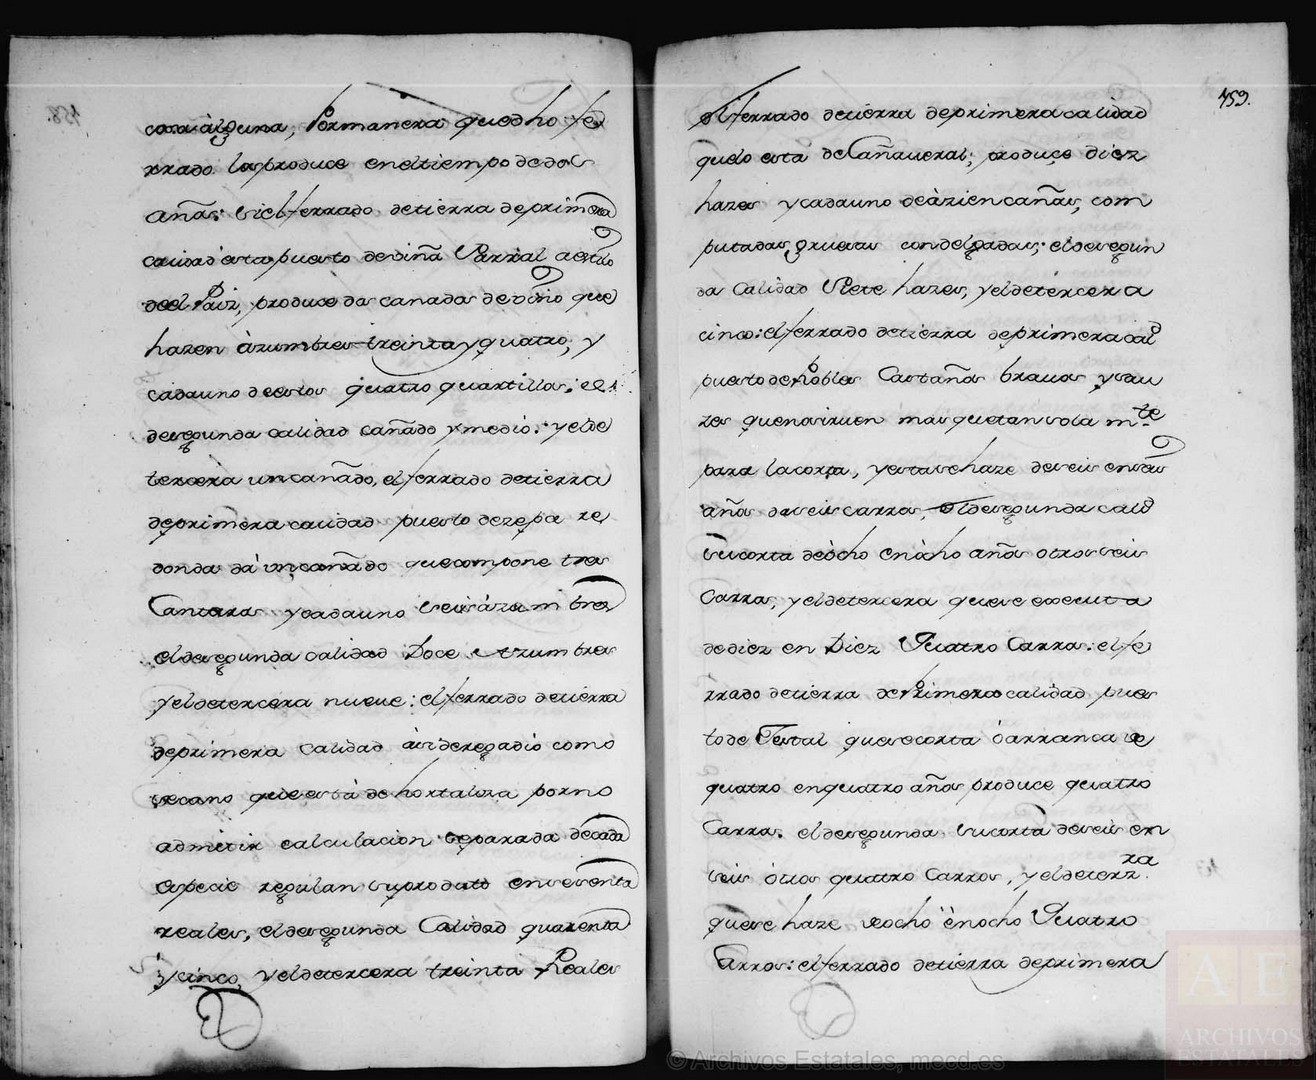 cosa alguna, Por manera que dho fe
rrado los produce en el tiempo de dos
años: si el ferrado de tierra de primera
calidad esta puesto de viña Parral a estilo
de el Pais, produce dos canados de vino que
hazen àzumbres treinta y quatro, y
cada uno de estos quatro quartillos; el
de segunda calidad cañado y medio: y el de
tercera un cañado, el ferrado de tierra
de primera calidad puesto de zepa re
donda dá un cañado que compone tres
Cantaras y cada uno seis àzumbres
el de segunda calidad Doce Azumbres
y el de tercera nueve: el ferrado de tierra
de primera calidad àsi de regadio como
secano que està de hortaliza por no
admitir calculacion separada de cada
especie regulan su producto en sesenta
reales, el de segunda Calidad quarenta
y cinco, y el de tercera treinta Reales
459.
el ferrado de tierra de primera calidad
que lo esta de Cañaveral; produce diez
hazes y cada uno de à zien cañas, com
putadas gruesas con delgadas; el de segun
da Calidad Siete hazes, y el de tercera
cinco: el ferrado de tierra de primera calid
puesto de Robles Castaños bravos y sau
zes que no sirven mas que tan sola mte
para la corta, y esta se haze de seis en seis
años da seis carros, El de segunda calid
su corta de ocho en òcho años otros seis
Carros, y el de tercera que se executa
de diez en Diez Quatro Carros: el fe
rrado de tierra de Primera calidad pues
to de Tojal que se corta ò arranca de
quatro en quatro años produce quatro
Carros. el de segunda su corta de seis en
seis òtros quatro Carros, y el de terzra
que se haze de ocho en ocho Quatro
Carros: el ferrado de tierra de primera
© Archivos Estatales, mecd.es
AE
ARCHIVOS
ESTATALES